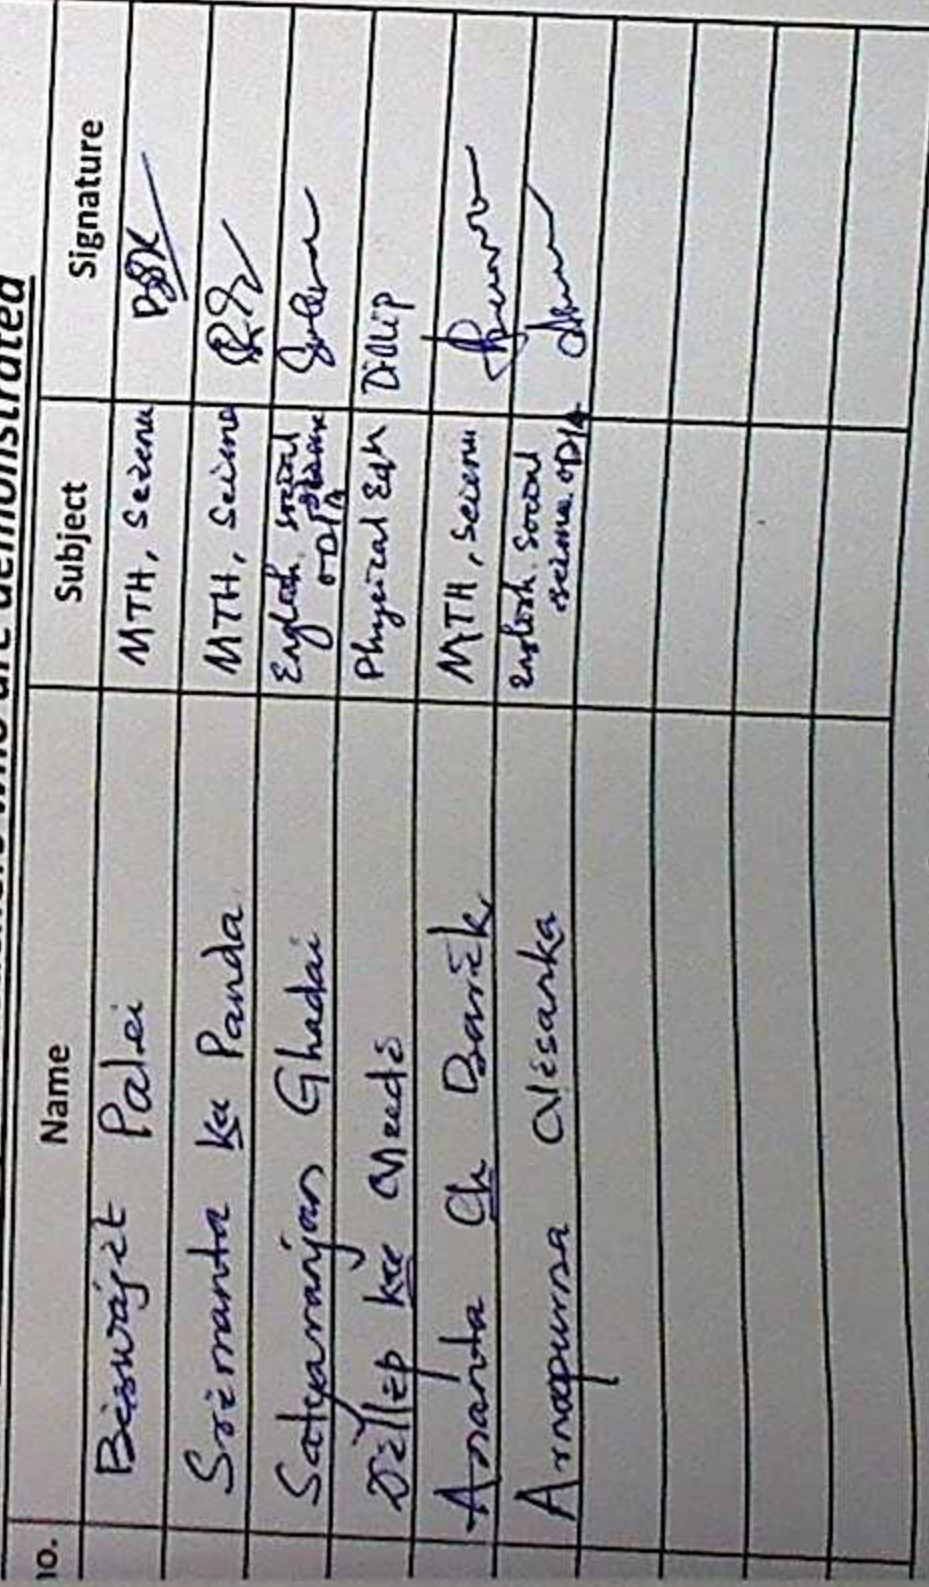 who are demonstrated
no. Name Subject Signature
Biswajit Palei MTH, Science
Srimanta Ku Panda MTH, Science
Satyaranjan Ghadai English. social science ODIA
Dillip ku Dillip Physical Edn
Ananta Ch Barik MTH, science
Annapurna English. Social science ODIA